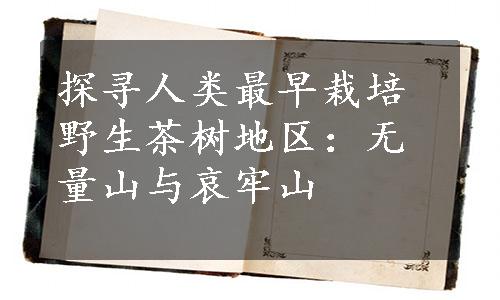 探寻人类最早栽培
野生茶树地区：无
量山与哀牢山